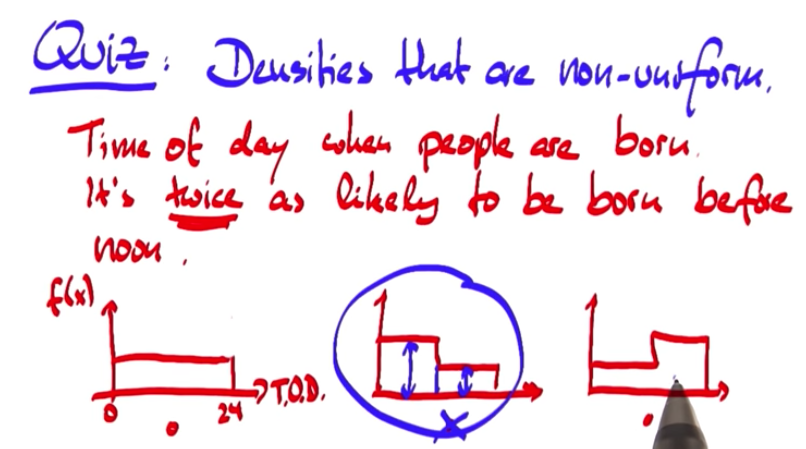 Quiz: Densities that are non-uniform.
Time of day when people are born.
It's twice as likely to be born before
noon.
f(x)
0 24 T.O.D.